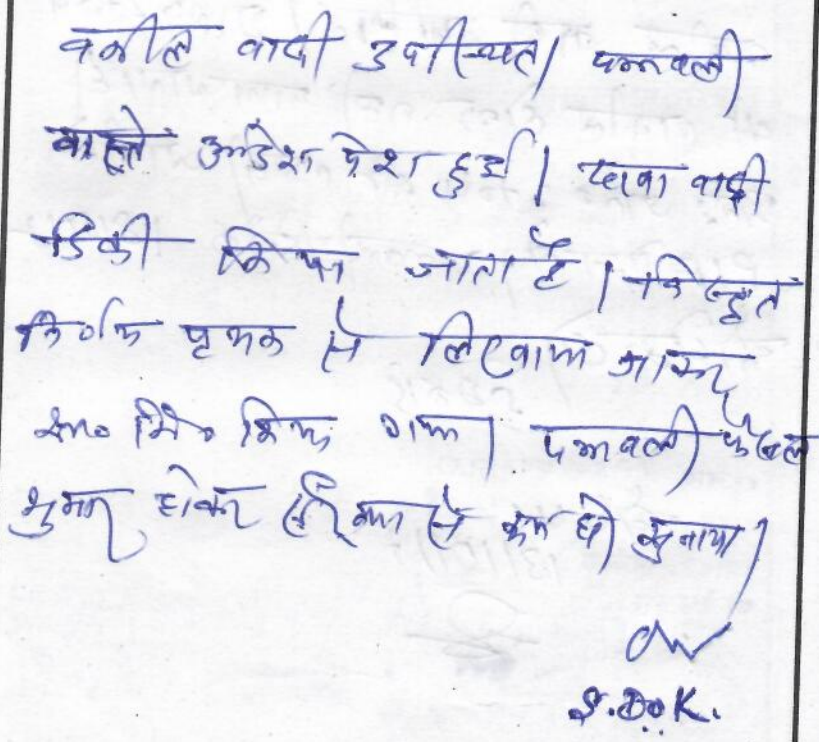 वकील वादी उपस्थित। पत्रावली
वास्ते आदेश पेश हुई। दावा वादी
डिक्री किया जाता है। विस्तृत
निर्णय पृथक से लिखवाया जाकर
शा० मि० किया गया। पत्रावली फैसल
शुमार होकर नम्बर से कम हो सुनाया।
S.D.O.K.